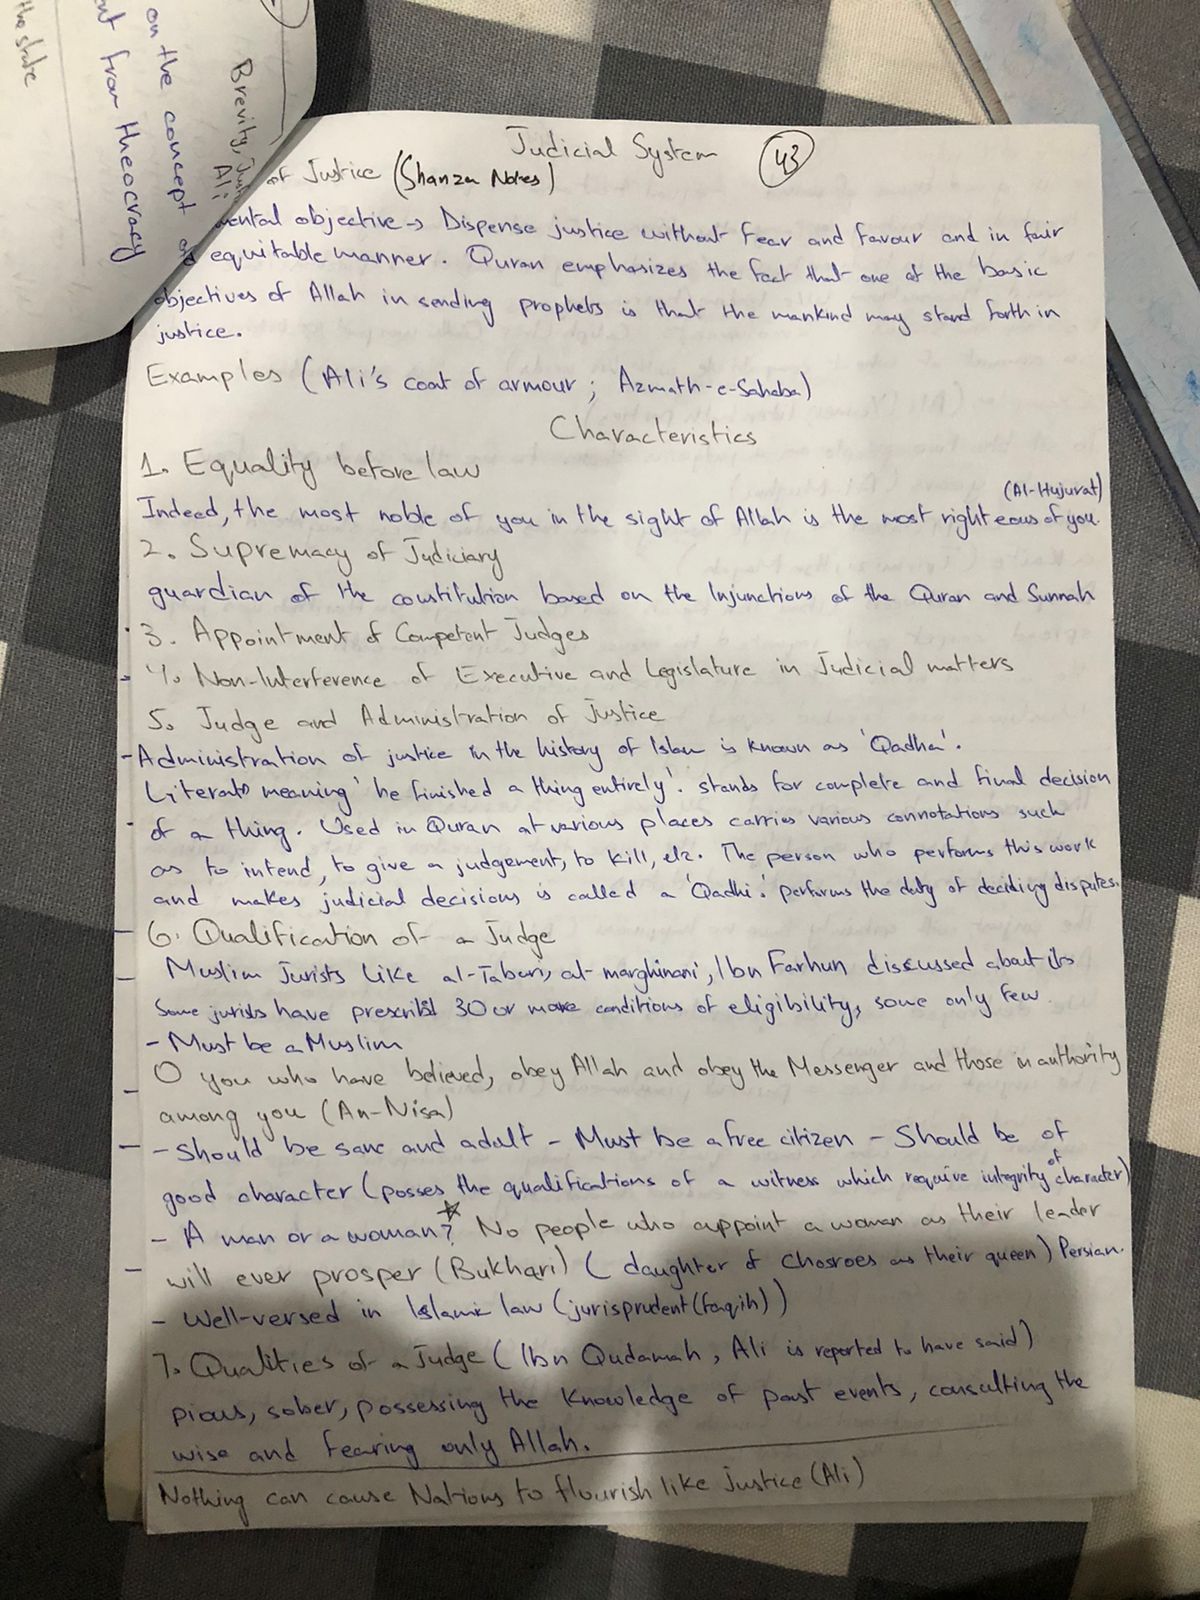 the state
ent from theocracy
on the concept of
Brevity, Just
Ali
Judicial System
43
of Justice (Shanza Notes)
mental objective → Dispense justice without fear and favour and in fair
equitable manner. Quran emphasizes the fact that one of the basic
objectives of Allah in sending prophets is that the mankind may stand forth in
justice.
Examples (Ali's coat of armour ; Azmath-e-Sahaba)
Characteristics
1. Equality before law
(Al-Hujurat)
Indeed, the most noble of you in the sight of Allah is the most righteous of you.
2. Supremacy of Judiciary
guardian of the constitution based on the Injunctions of the Quran and Sunnah
3. Appointment of Competent Judges
4. Non-Interference of Executive and Legislature in Judicial matters
5. Judge and Administration of Justice
- Administration of justice in the history of Islam is known as 'Qadha'.
Literal meaning 'he finished a thing entirely'. stands for complete and final decision
of a thing. Used in Quran at various places carries various connotations such
as to intend, to give a judgement, to kill, etc. The person who performs this work
and makes judicial decisions is called a 'Qadhi.' performs the duty of deciding disputes.
6. Qualification of a Judge
Muslim Jurists like al-Tabari, al-marghinani, Ibn Farhun discussed about its
Some jurists have prescribed 30 or more conditions of eligibility, some only few.
- Must be a Muslim
O you who have believed, obey Allah and obey the Messenger and those in authority
among you (An-Nisa)
- Should be sane and adult - Must be a free citizen - Should be of
good character (posses the qualifications of a witness which require integrity of character)
- A man or a woman? No people who appoint a woman as their leader
will ever prosper (Bukhari) ( daughter of Chosroes as their queen) Persian.
- Well-versed in Islamic law (jurisprudent (faqih))
7. Qualities of a Judge ( Ibn Qudamah, Ali is reported to have said)
pious, sober, possessing the knowledge of past events, consulting the
wise and fearing only Allah.
Nothing can cause Nations to flourish like Justice (Ali)